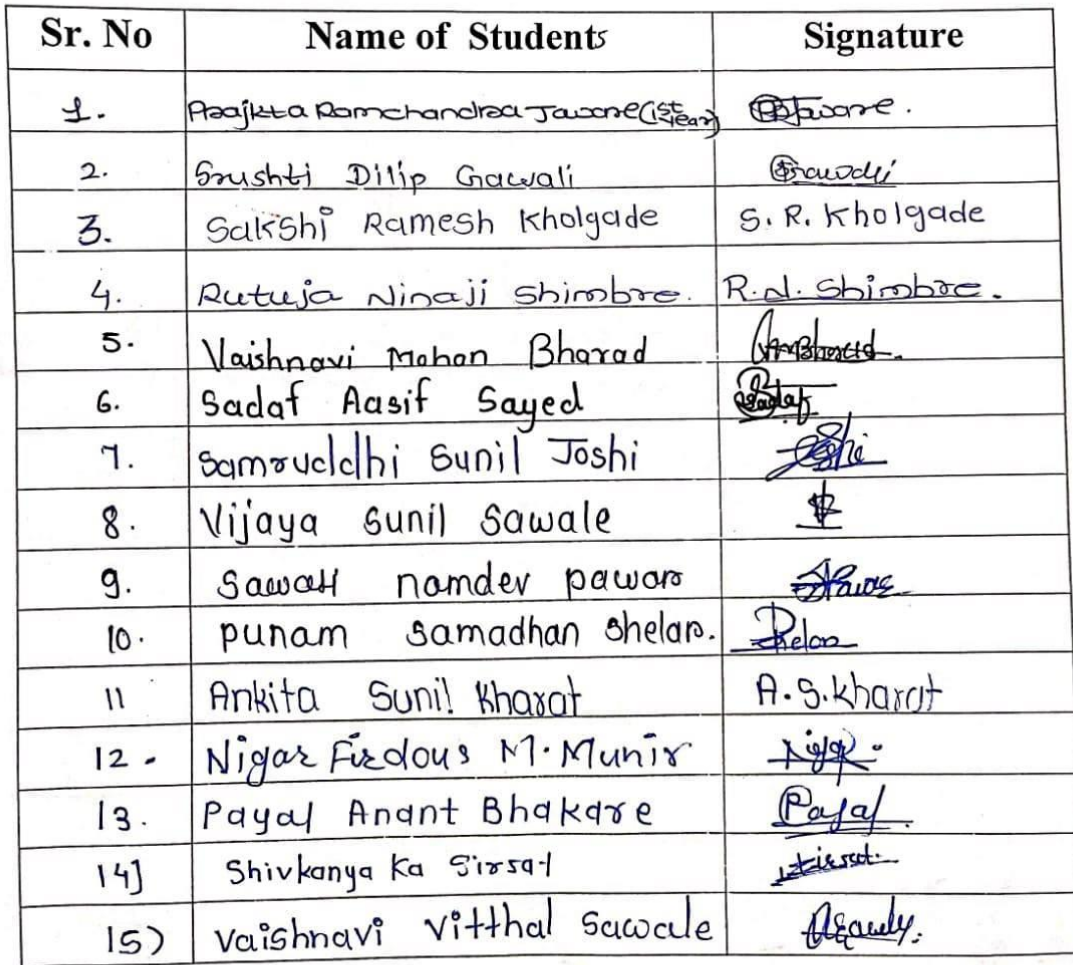 Sr. No Name of Students Signature
1. Prajkta Ramchandra Jaware (1st year) Jaware.
2. Srushti Dilip Gawali Gawali
3. Sakshi Ramesh Kholgade S. R. Kholgade
4. Rutuja Ninaji Shimbre. R.N. Shimbre.
5. Vaishnavi Mohan Bharad
6. Sadaf Aasif Sayed Sadaf
7. Samruddhi Sunil Joshi
8. Vijaya Sunil Sawale
9. namdev pawar
10. punam samadhan shelar. Shelar
11 Ankita Sunil Kharat A.S.kharat
12. Nigar Firdous M. Munir Nigar.
13. Payal Anant Bhakare Payal.
14] Shivkanya Ka Sirsat
15) Vaishnavi Vitthal Sawale